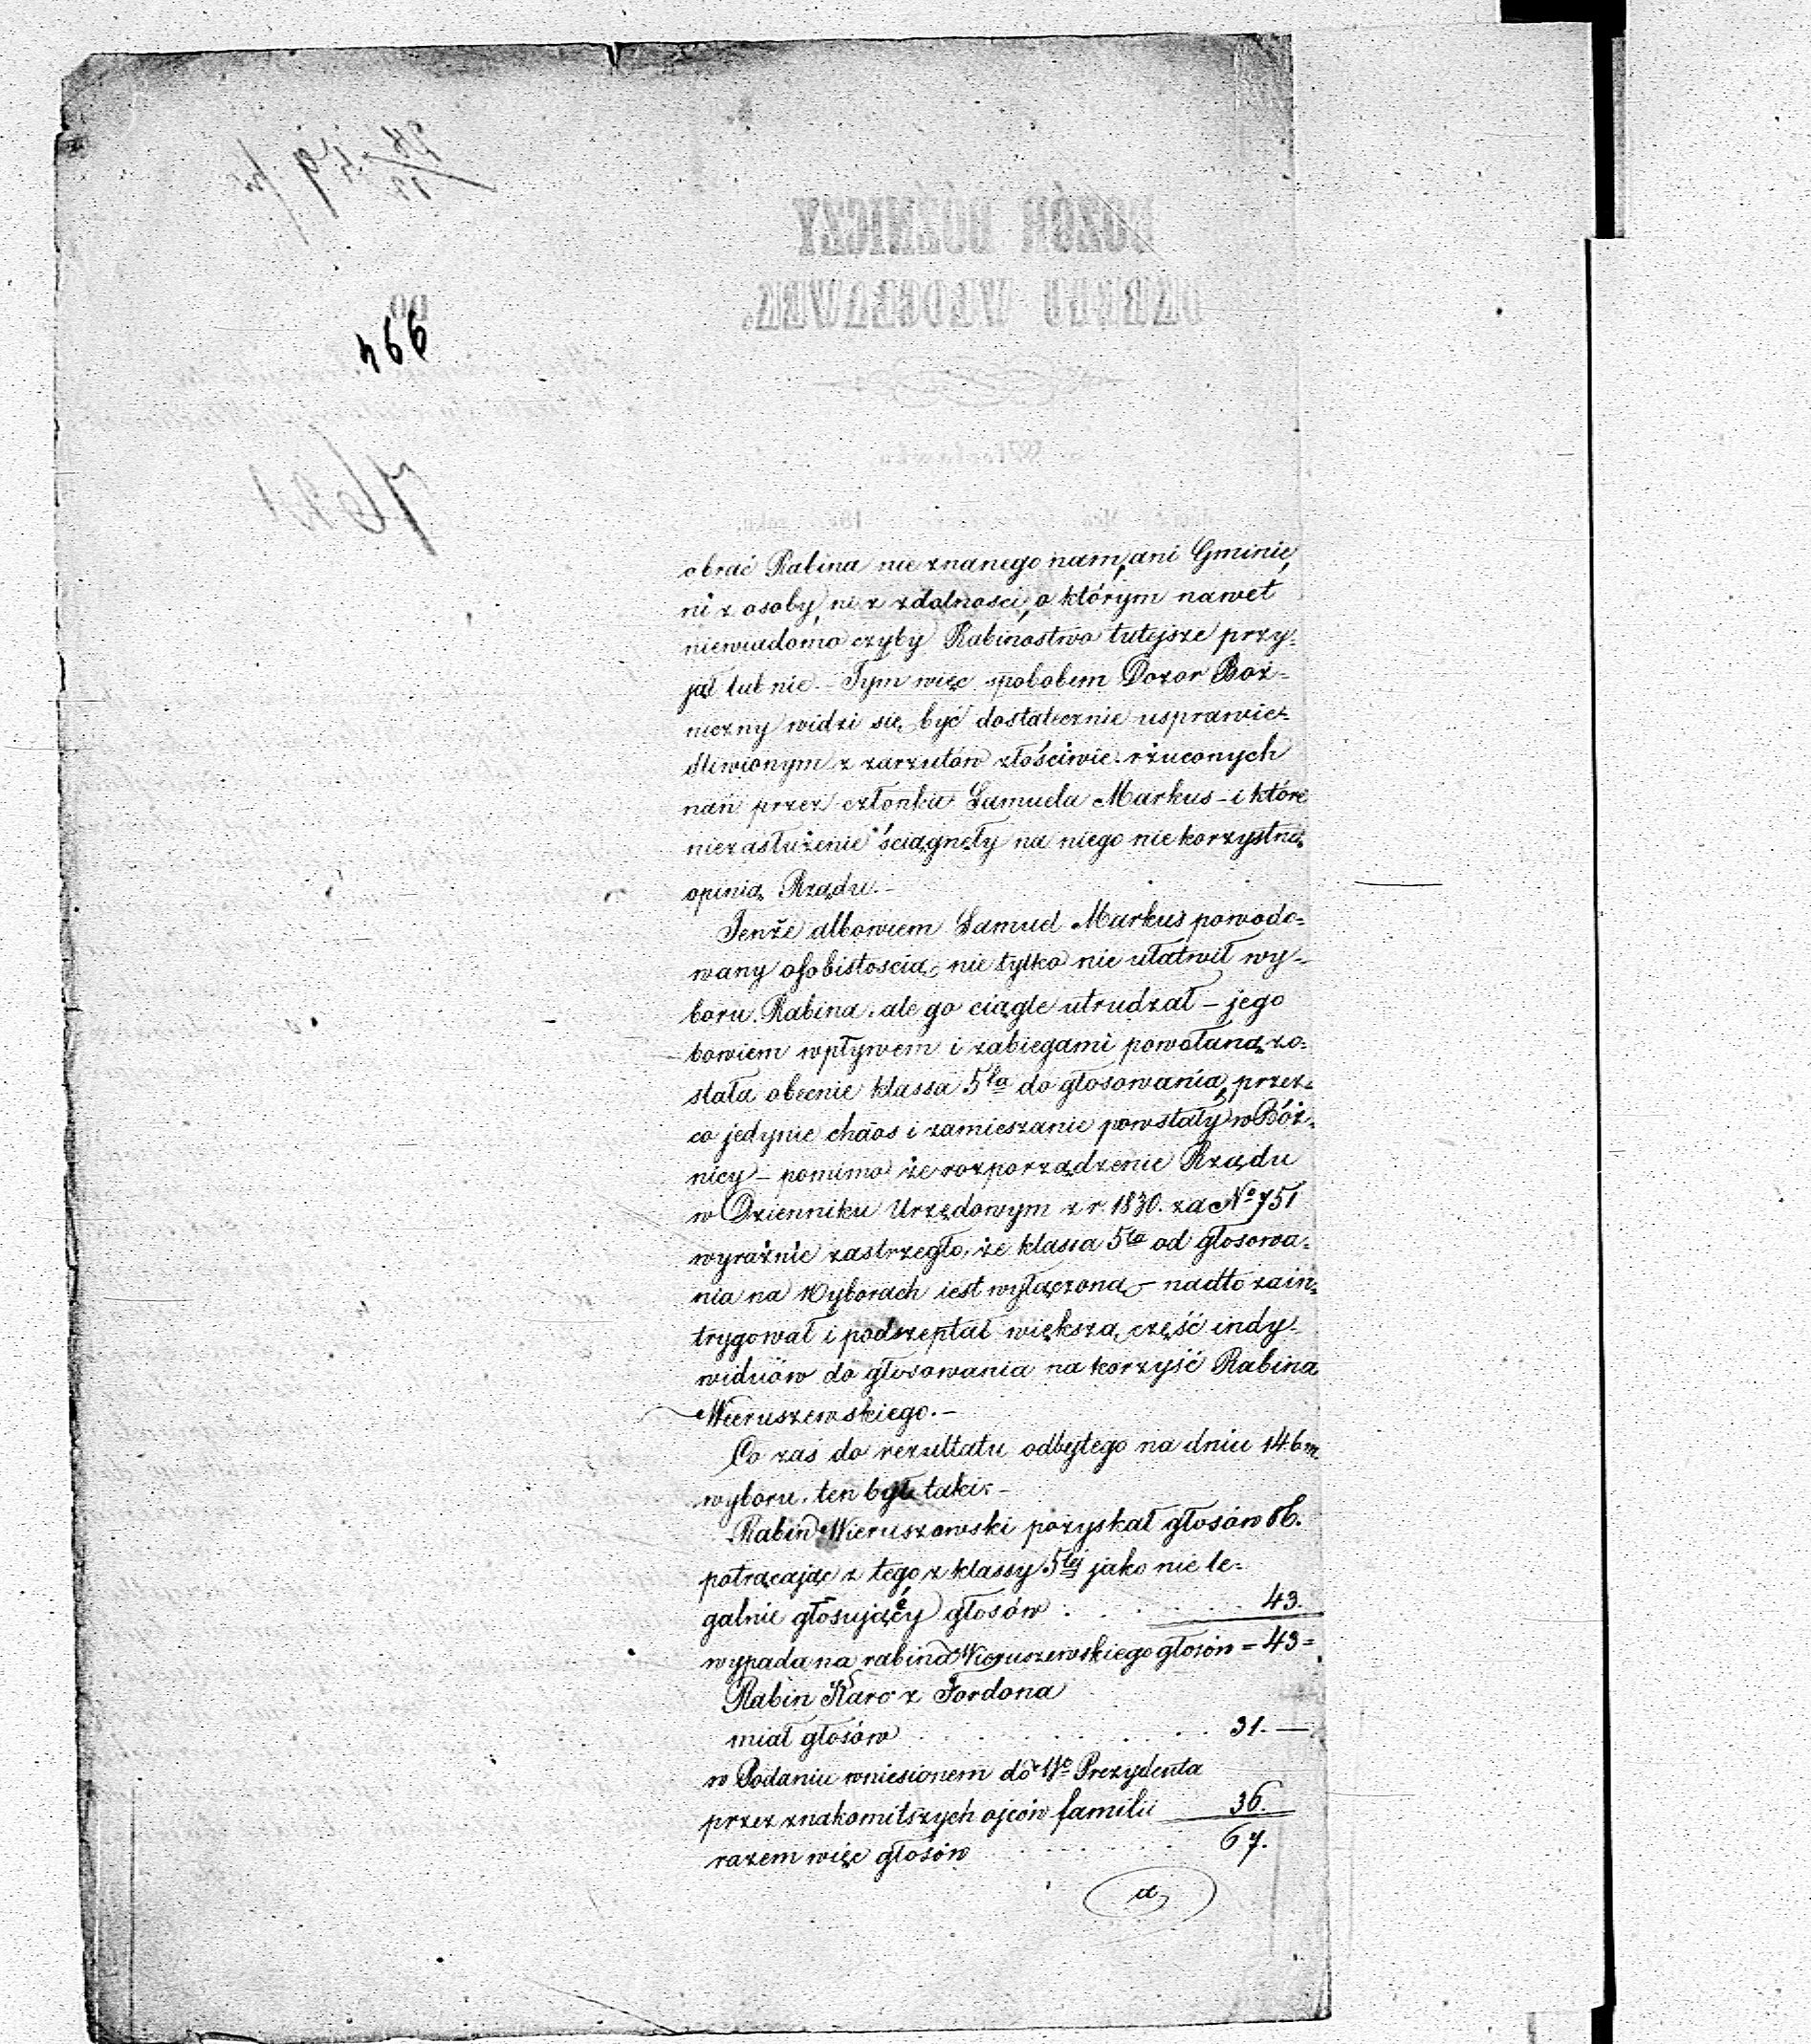 466
obrać Rabina nie znanego nam, ani Gminie,
ni z osoby, ni z zdolności, o którym nawet
niewiadomo czyby Rabinostwo tutejsze przy-
jął lub nie. – Tym więc spobobem Dozor Boż-
niczny widzi się być dostatecznie usprawie-
dliwionym z zarzutów złościwie rzuconych
nań przez członka Samuela Markus – i które
niezasłużenie ściągnęły na niego niekorzystną
opinią Rządu. –
Tenże albowiem Samuel Markus powodo-
wany osobistością, nie tylko nie ułatwił wy-
boru Rabina, ale go ciągle utrudzał – jego
bowiem wpływem i zabiegami powołaną zo-
stała obecnie klassa 5ta do głosowania, przez-
co jedynie chaos i zamieszanie powstały w Bóż-
nicy – pomimo że rozporządzenie Rządu
w Dzienniku Urzędowym z r. 1830. za No 751
wyraźnie zastrzegło, że klassa 5ta od głosowa-
nia na Wyborach iest wyłączoną – nadto zain-
trygował i podszeptał większą część indy-
widuów do głosowania na korzyść Rabina
Wieruszewskiego. –
Co zaś do rezultatu odbytego na dniu 14 b m.
wyboru, ten był taki: –
Rabin Wieruszowski pozyskał głosów 86.
potrącając z tego z klassy 5tej jako nie le-
galnie głosujący głosów . . . . . . 43.
wypada na rabina Wieruszewskiego głosów = 43 =
Rabin Karo z Fordona
miał głosów . . . . . . 31. —
w Podaniu wniesionem do We Prezydenta
przez znakomitszych ojców familii 36.
razem więc głosów . . . . . . 67.
a,